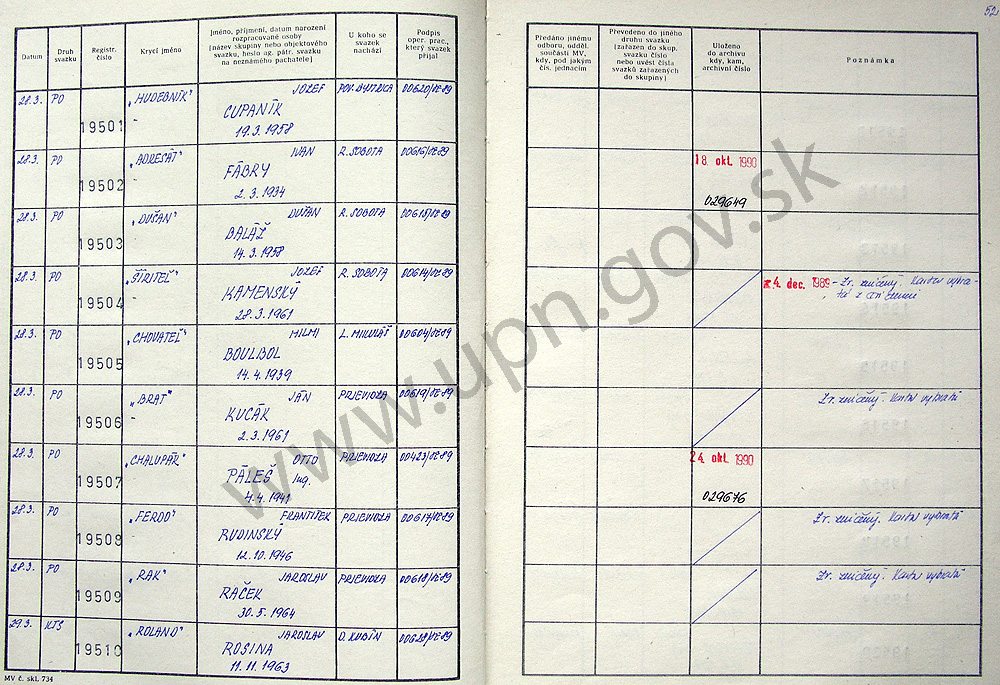 52
Datum
Druh svazku
Registr. číslo
Krycí jméno
Jméno, příjmení, datum narození
rozpracované osoby
(název skupiny nebo objektového
svazku, heslo ag. pátr. svazku
na neznámého pachatele)
U koho se svazek nachází
Podpis oper. prac., který svazek přijal
Předáno jinému odboru, odděl. součásti MV, kdy, pod jakým čís. jednacím
Převedeno do jiného druhu svazku (zařazen do skup. svazku číslo nebo uvést čísla svazků zařazených do skupiny)
Uloženo do archivu kdy, kam, archivní číslo
Poznámka
28.3. PO 19501 „HUDEBNÍK" JOZEF POV. BYSTRICA
CUPANÍK
19.3.1958
28.3. PO 19502 „ADRESÁT" IVAN R. SOBOTA 18. okt. 1990
FÁBRY
2.3.1934 029649
28.3. PO 19503 „DUŠAN" DUŠAN R. SOBOTA
BALÁŽ
14.3.1958
28.3. PO 19504 „ŠÍRITEĽ" JOZEF R. SOBOTA 4. dec. 1989 - Zv. zničený.
KAMENSKÝ
28.3.1961
28.3. PO 19505 „CHOVATEĽ" MILMI L. MIKULÁŠ
BOULBOL
14.4.1939
28.3. PO 19506 „BRAT" JÁN PRIEVIDZA Zv. zničený.
KUCÁK
2.3.1961
28.3. PO 19507 „CHALUPÁR" OTTO PRIEVIDZA 24. okt. 1990
PÁLEŠ Ing.
4.4.1941 029676
28.3. PO 19508 „FERDO" FRANTIŠEK PRIEVIDZA Zv. zničený.
RUDINSKÝ
12.10.1946
28.3. PO 19509 „RAK" JAROSLAV PRIEVIDZA Zv. zničený.
RAČEK
30.5.1964
29.3. KTS 19510 „ROLAND" JAROSLAV D. KUBÍN
ROSINA
11.11.1963
MV č. skl. 734
www.upn.gov.sk